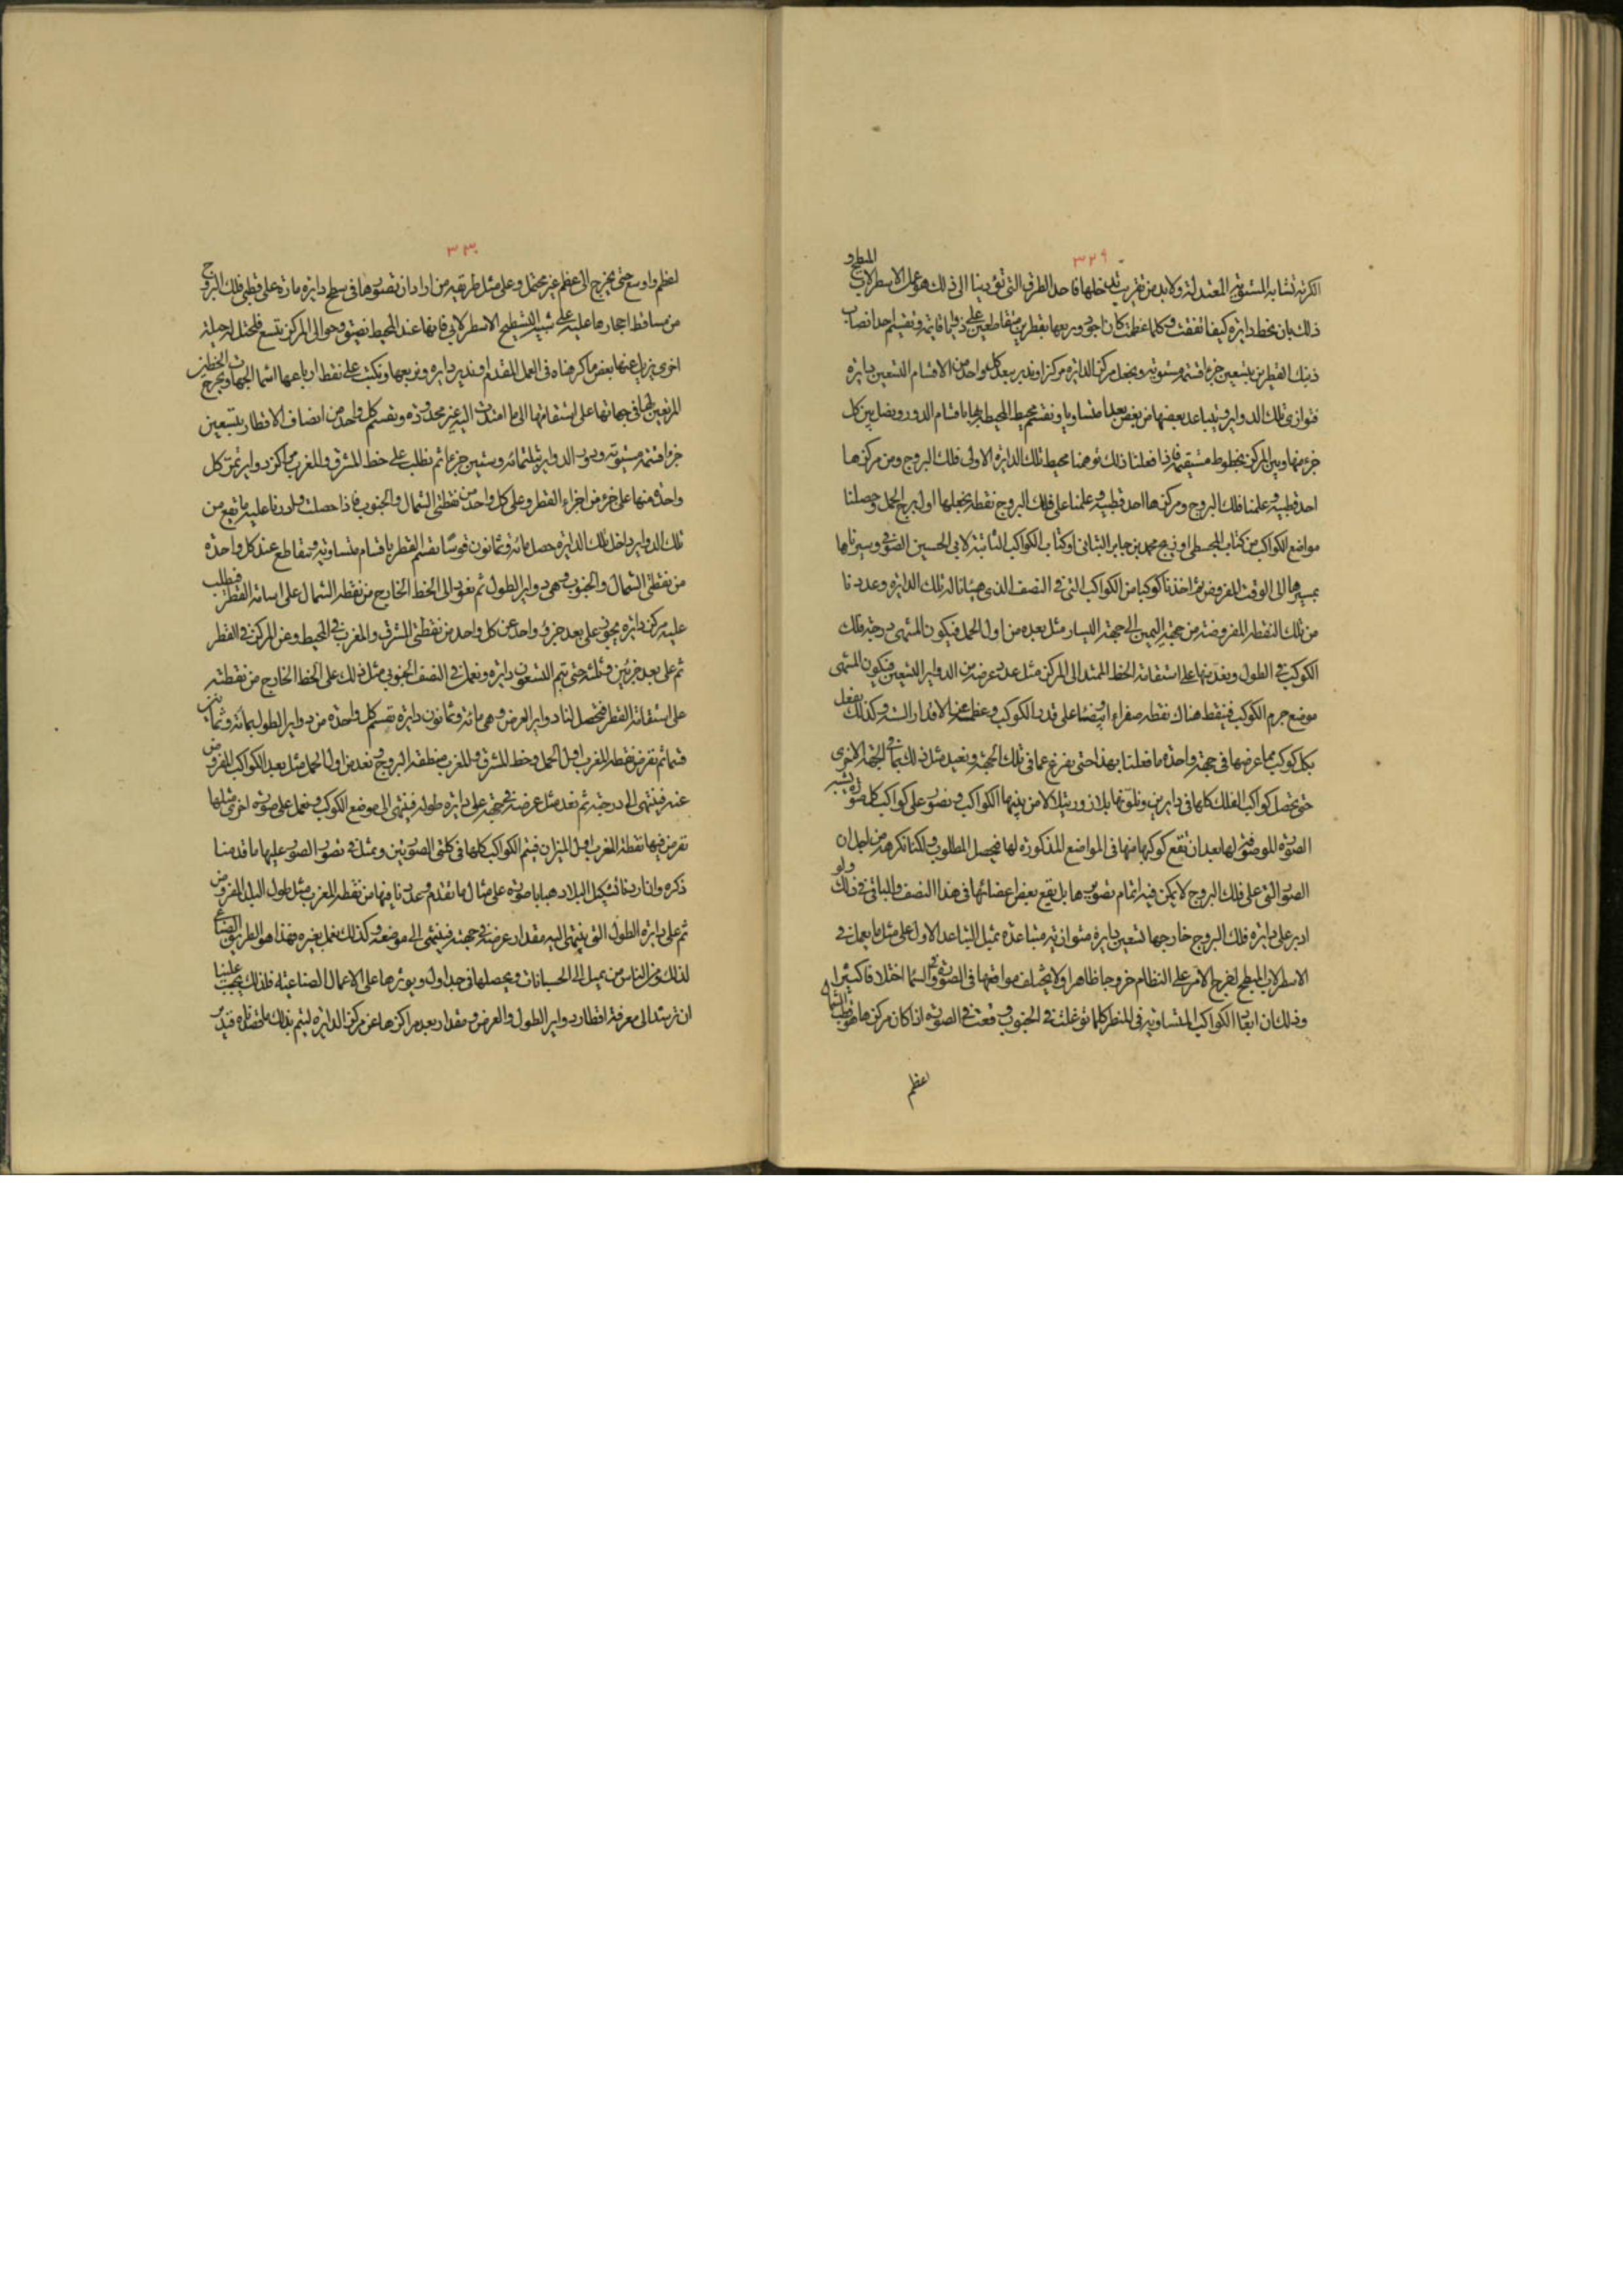 ٣٢٩
الكرية تشابه المستوية المعتدلة ولا بد من تقريب يدخلها فاحد الطرق التي تؤدينا الى ذلك هو عمل الاسطرلاب المبطح و
ذلك بان نخط دايرة كيفما اتفقت وكلما عظمت كان اجود ونربعها بقطرين متقاطعين على زوايا قايمة ونقسم احد انصاف
ذينك القطرين بتسعين جزءا قسمة مستوية ونجعل مركز الدايرة مركزا وندير ببعد كل واحد من الاقسام التسعين دايرة
فتوازى تلك الدواير وتتباعد بعضها من بعض بعدا متساويا ونقسم محيط المحيطة بها باقسام الدور ونصل بين كل
جزء منها وبين المركز بخطوط مستقيمة فاذا فعلنا ذلك توهمنا محيط تلك الدايرة الاولى فلك البروج ومن مركزها
احد قطبيه وعلمنا فلك البروج ومركزها احد قطبيه وعلمنا على فلك البروج نقطة نجعلها اول برج الحمل وحصلنا
مواضع الكواكب من كتاب المجسطى او زيج محمد بن جابر البتانى او كتاب الكواكب الثابتة لابى الحسين الصوفى وسيرناها
بمسيرها الى الوقت المفروض ثم اخذنا كوكبا من الكواكب التى فى النصف الذى هيأنا له تلك الدايرة وعددنا
من تلك النقطة المفروضة من جهة اليمين الى جهة اليسار مثل بعده من اول الحمل فيكون المنتهى درجة فلك
الكوكب فى الطول ونعد منها على استقامة الخط الممتد الى المركز مثل عدد عرضه من الدواير التسعين فيكون المنتهى
موضع جرم الكوكب فننقط هناك نقطة صفراء او بيضاء على قدر الكوكب وعظمه من الاقدار الستة وكذلك نفعل
بكل كوكب مما عرضها فى جهة واحدة ما فعلنا بهذا حتى نفرغ عما فى تلك الجهة ونعيد مثل ذلك بما فى الجهة الاخرى
حتى تحصل كواكب الفلك كلها فى دايرتين ونلونها بلازورد ليلا من بينها الكواكب ونصور على كواكب كل صورة شبه
الصورة الموصوفة لها بعد ان تقع كوكبها منها فى المواضع المذكورة لها فيحصل المطلوب ولكنا نكرهه من اجل ان
الصور التى على فلك البروج لا يمكن فيه اتمام تصويرها بل يقع بعض اعضائها فى هذا النصف والباقى فى ذلك ولو
ادير على دايرة فلك البروج خارجها تسعين دايرة متوازية متباعدة بمثل التباعد الاول على مثل ما يعمل فى
الاسطرلاب المبطح لخرج الامر على النظام خروجا ظاهرا ولا يختلف مواقعها فى الصورة وفى السماء اختلافا كثيرا
وذلك ان ابعاد الكواكب المتساوية فى المنظر كلما توغلت فى الجنوب وقعت فى الصورة اذا كان مركزها هو قطب الشمال
اعظم
٣٣٠
اعظم واوسع حتى يخرج الى عظم غير محتمل وعلى مثل طريقه من اراد ان تصورها فى سطح دايرة مارة على قطبى فلك البروج
من مساقط احجارها عليه على شبيه التسطيح الاسطرلابى فانها عند المحيط تضيق وحوالى المركز تتسع فلنحتل له حيلة
اخرى يزيل عنها بعض ما كرهناه فى العمل المتقدم وندير دايرة ونربعها ونكتب على نقط ارباعها اسماء الجهات ونخرج الخطين
المربعين لها فى جهاتها على استقامتها الى ما امتدت اليه غير محدودة ونقسم كل واحد من انصاف الاقطار بتسعين
جزءا قسمة مستوية ودور الدواير بثلثمائة وستين جزءا ثم نطلب على خط المشرق والمغرب مراكز دواير تمر كل
واحدة منها على جزء من اجزاء القطر وعلى كل واحد من نقطتى الشمال والجنوب فاذا حصلت وادرنا عليه ما يقع من
تلك الدواير داخل تلك الدايرة حصل مائة وثمانون قوسا تقسم القطر باقسام متساوية وتتقاطع عند كل واحدة
من نقطتى الشمال والجنوب وهى دواير الطول ثم نعود الى الخط الخارج من نقطة الشمال على استقامة القطر فنطلب
عليه مركز دايرة تجوز على بعد جزء واحد عن كل واحد من نقطتى المشرق والمغرب فى المحيط وعن المركز فى القطر
ثم على بعد جزئين وثلثة حتى تتم التسعون دايرة ونعمل فى النصف الجنوبى مثل ذلك على الخط الخارج من نقطته
على استقامة القطر فتحصل لنا دواير العرض وهى مائة وثمانون دايرة تقسم كل واحدة من دواير الطول بمائة وثمانين
قسما ثم نفرض نقطة المغرب اول الحمل وخط المشرق والمغرب منطقة البروج ونعد من اول الحمل مثل بعد الكواكب المفروض
عنه فينتهى الى درجته ثم نعد مثل عرضه فى جهته على دايرة طوله فينتهى الى موضع الكوكب ونعمل على صورة اخرى مثلها
نفرض فيها نقطة المغرب اول الميزان فيتم الكواكب كلها فى كلتى الصورتين ونمثل فى تصور الصور عليها ما قدمنا
ذكره وان اردنا تشكيل البلاد هيانا صورة على مثال ما تقدم وعددنا فيها من نقطة المغرب مثل طول البلد المفروض
ثم على دايرة الطول التى ينتهى اليه مقدار عرضه فى جهته فينتهى الى موضعه وكذلك نعمل بغيره فهذا هو الطريق الصناعى
لذلك ومن الناس من يميل الى الحسابات ويحصلها فى جداول ويؤثرها على الاعمال الصناعية فلذلك يجب علينا
ان نرشد الى معرفة اقطار دواير الطول والعرض ومقدار بعد مراكزها عن مركز الدايرة ليتم بذلك ما قصدناه